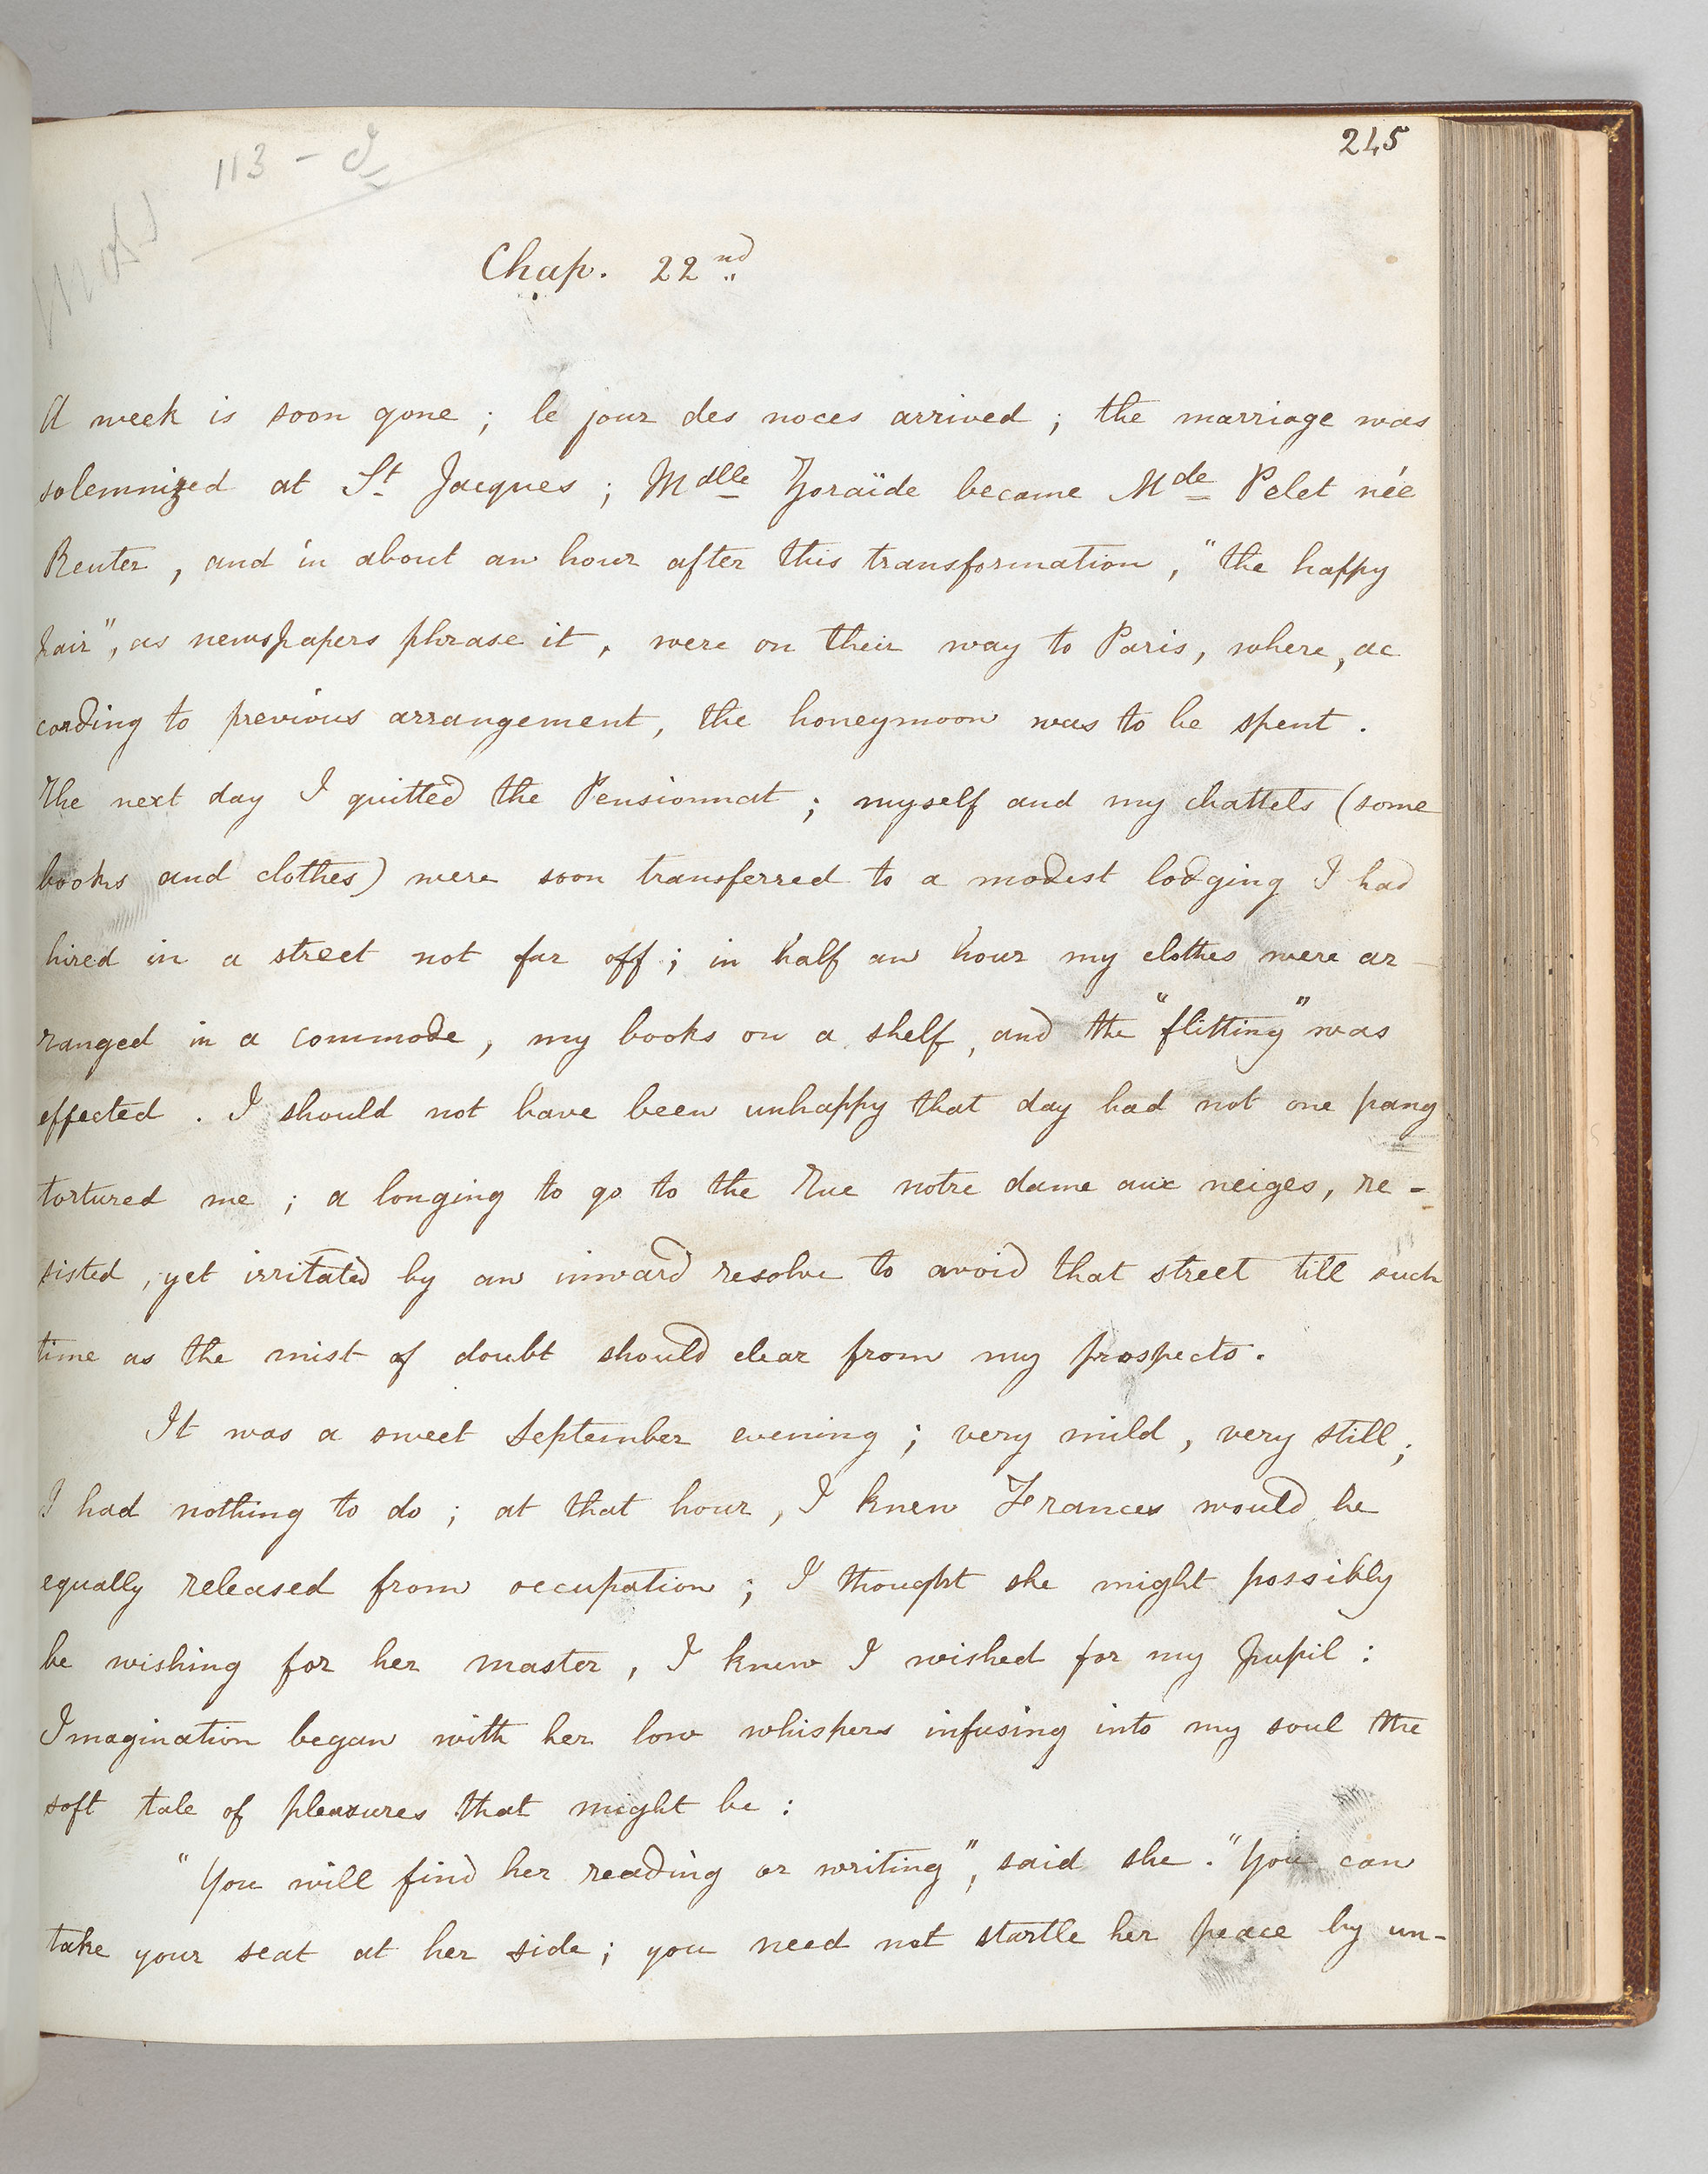 245
113 -
Chap. 22nd
A week is soon gone ; le jour des noces arrived ; the marriage was
solemnized at St Jacques ; Mdlle Zoraïde became Mde Pelet née
Reuter , and in about an hour after this transformation , "the happy
pair", as newspapers phrase it , were on their way to Paris, where, ac
cording to previous arrangement, the honeymoon was to be spent .
The next day I quitted the Pensionnat ; myself and my chattels (some
books and clothes) were soon transferred to a modest lodging I had
hired in a street not far off ; in half an hour my clothes were ar
ranged in a commode, my books on a shelf, and the "flitting" was
effected . I should not have been unhappy that day had not one pang
tortured me ; a longing to go to the Rue notre dame aux neiges, re-
sisted, yet irritated by an inward resolve to avoid that street till such
time as the mist of doubt should clear from my prospects.
It was a sweet September evening ; very mild, very still ;
I had nothing to do ; at that hour, I knew Frances would be
equally released from occupation ; I thought she might possibly
be wishing for her master, I knew I wished for my pupil :
Imagination began with her low whispers infusing into my soul the
soft tale of pleasures that might be :
"You will find her reading or writing", said she . "You can
take your seat at her side ; you need not startle her peace by un-